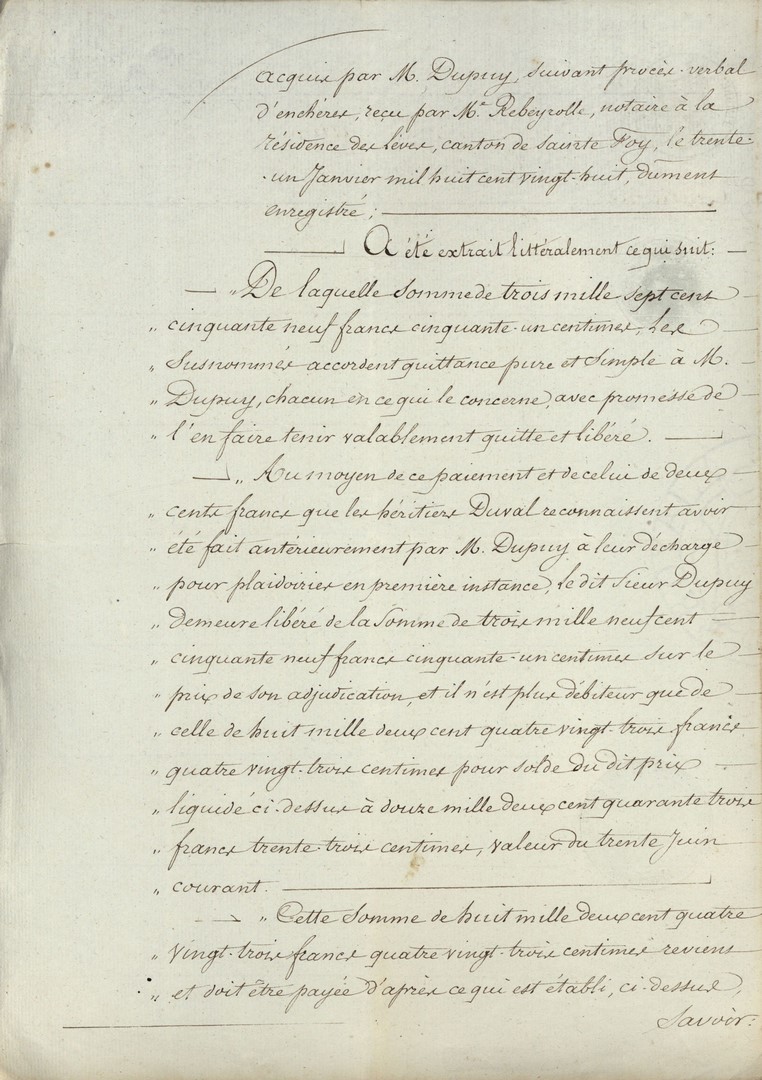 acquis par M. Dupuy, suivant procès-verbal
d'enchères, reçu par Me. Rebeyrolle, notaire à la
résidence des Lèves, canton de Sainte Foy, le trente-
un Janvier mil huit cent vingt-huit, dûment
enregistré;
A été extrait littéralement ce qui suit:
„ De laquelle somme de trois mille sept cent
„ cinquante neuf francs cinquante-un centimes, les
„ susnommés accordent quittance pure et simple à M.
„ Dupuy, chacun en ce qui le concerne, avec promesse de
„ l'en faire tenir valablement quitte et libéré.
„ Au moyen de ce paiement et de celui de deux
„ cents francs que les héritiers Duval reconnaissent avoir
„ été fait antérieurement par M. Dupuy à leur décharge
„ pour plaidoiries en première instance, le dit Sieur Dupuy
„ demeure libéré de la Somme de trois mille neuf cent
„ cinquante neuf francs cinquante-un centimes sur le
„ prix de son adjudication, et il n'est plus débiteur que de
„ celle de huit mille deux cent quatre vingt-trois francs
„ quatre vingt-trois centimes pour solde du dit prix
„ liquidé ci-dessus à douze mille deux cent quarante trois
„ francs trente-trois centimes, valeur du trente Juin
„ courant.
„ Cette Somme de huit mille deux cent quatre
„ vingt-trois francs quatre vingt-trois centimes revient
„ et doit être payée d'après ce qui est établi, ci-dessus,
Savoir: